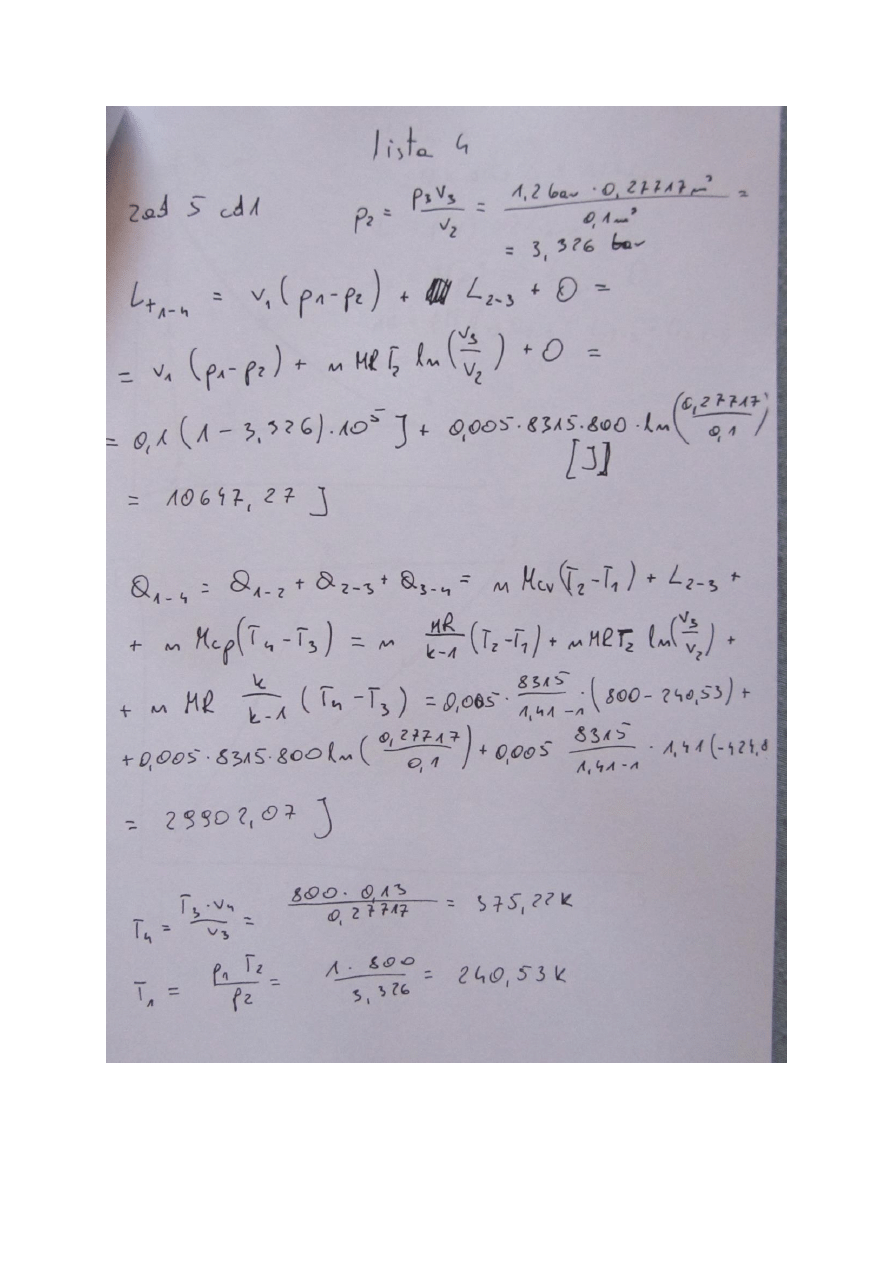 lista 4
zad 5 cd1 p2 = p3V3 / V2 = 1,2 bar · 0,27717 m³ / 0,1 m³ =
= 3,326 bar
Lt1-4 = V1 (p1-p2) + L2-3 + 0 =
= V1 (p1-p2) + n MR T2 ln(V3/V2) + 0 =
= 0,1 (1 - 3,326)·10⁵ J + 0,005·8315·800·ln(0,27717/0,1) [J]
= 10647,27 J
Q1-4 = Q1-2 + Q2-3 + Q3-4 = n Mcv(T2-T1) + L2-3 +
+ n Mcp(T4-T3) = n MR/k-1 (T2-T1) + n MRT2 ln(V3/V2) +
+ n MR k/k-1 (T4-T3) = 0,005· 8315/1,41-1 ·(800 - 240,53) +
+ 0,005·8315·800 ln(0,27717/0,1) + 0,005 8315/1,41-1 · 1,41 (-424,8
= 29902,07 J
T4 = T3·V4 / V3 = 800·0,13 / 0,27717 = 375,22 K
T1 = p1 T2 / p2 = 1·800 / 3,326 = 240,53 K